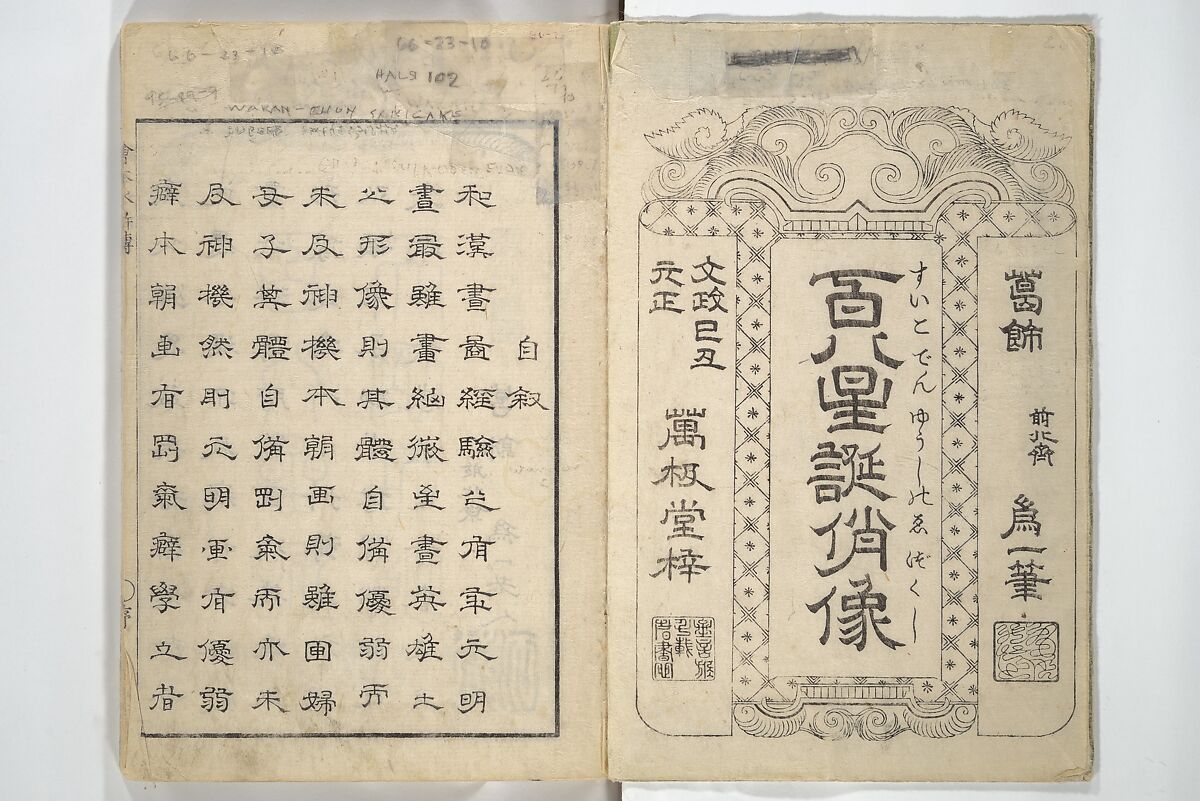 葛飾
前北斎
爲一筆
すいこでんゆうしのゑづくし
百八星誕俏像
文政己丑
元正
萬极堂梓
66-23-10
66-23-10
HALS 102
自敘
和漢畫圖經驗之有年元明
畫最雖畫細微至畫英雄士
之形像則其體自備優弱而
未及神機本朝画則雖画婦
女子其體自備剛氣而亦未
及神機然則元明画有優弱
癖本朝画有剛氣癖學立者